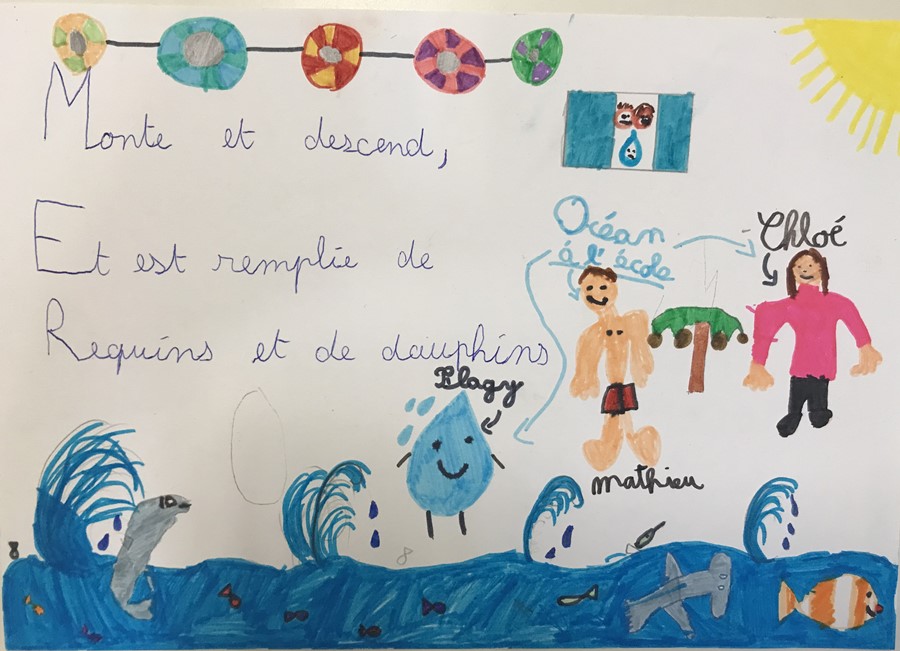 Monte et descend,
Et est remplie de
Requins et de dauphins
Océan
à l'école
Chloé
Plagy
mathieu
8
8